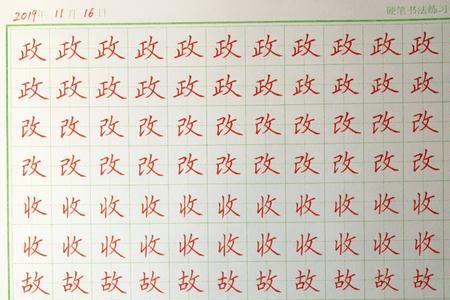 2019年 11月 16日 硬笔书法练习
政 政 政 政 政 政 政 政 政 政 政
政 政 政 政 政 政 政 政 政 政 政
改 改 改 改 改 改 改 改 改 改 改
改 改 改 改 改 改 改 改 改 改 改
收 收 收 收 收 收 收 收 收 收 收
收 收 收 收 收 收 收 收 收 收 收
故 故 故 故 故 故 故 故 故 故 故